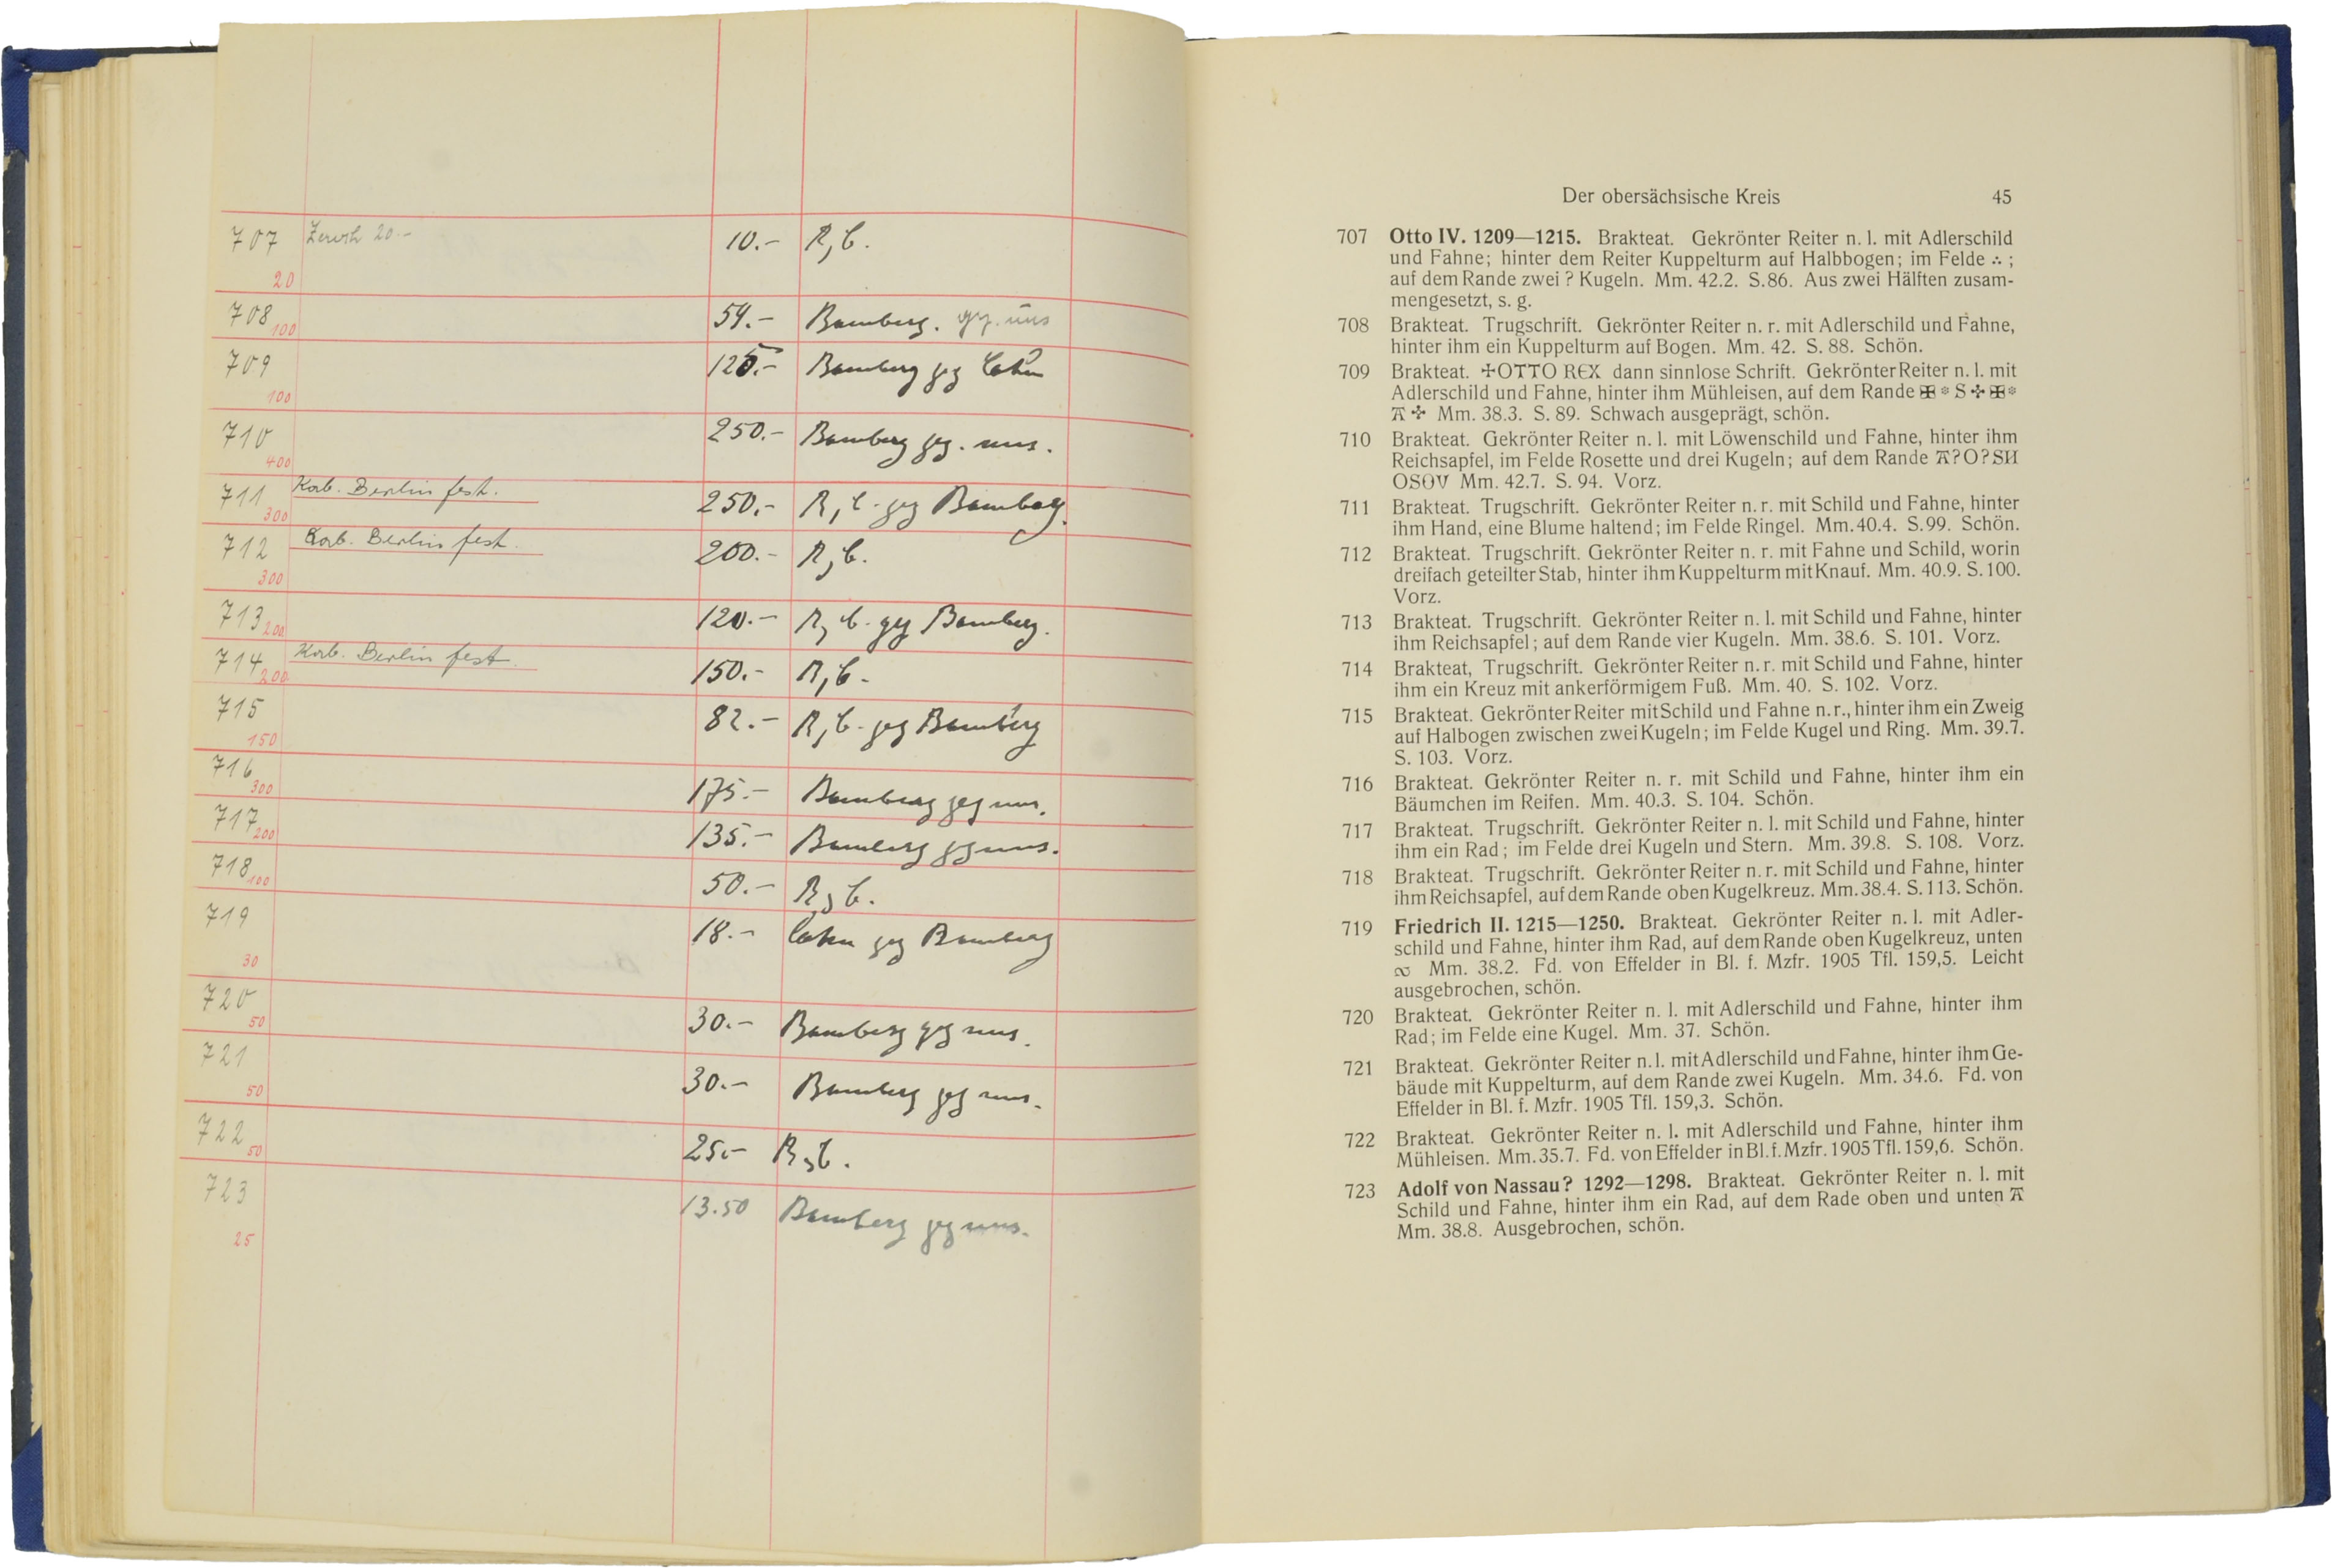 707 20.- 10.- R, C.
20
708 54.- Bamberg. geg. uns
100
709 125.- Bamberg geg Cahn
100
710 250.- Bamberg geg. uns.
400
711 Kab. Berlin fest. 250.- R, C. geg Bamberg.
300
712 Kab. Berlin fest. 200.- R, C.
300
713 120.- R, C. geg Bamberg.
200
714 Kab. Berlin fest. 150.- R, C.
200
715 82.- R, C. geg Bamberg
150
716 175.- Bamberg geg uns.
300
717 135.- Bamberg geg uns.
200
718 50.- R, C.
100
719 18.- Cahn geg Bamberg
30
720 30.- Bamberg geg uns.
50
721 30.- Bamberg geg uns.
50
722 25.- R, C.
50
723 13.50 Bamberg geg uns.
25
Der obersächsische Kreis 45
707 Otto IV. 1209—1215. Brakteat. Gekrönter Reiter n. l. mit Adlerschild
und Fahne; hinter dem Reiter Kuppelturm auf Halbbogen; im Felde ∴ ;
auf dem Rande zwei ? Kugeln. Mm. 42.2. S.86. Aus zwei Hälften zusam-
mengesetzt, s. g.
708 Brakteat. Trugschrift. Gekrönter Reiter n. r. mit Adlerschild und Fahne,
hinter ihm ein Kuppelturm auf Bogen. Mm. 42. S. 88. Schön.
709 Brakteat. ✢OTTO RЄX dann sinnlose Schrift. Gekrönter Reiter n. l. mit
Adlerschild und Fahne, hinter ihm Mühleisen, auf dem Rande ✠ * S ✣ ✠ *
Ā ✣ Mm. 38.3. S. 89. Schwach ausgeprägt, schön.
710 Brakteat. Gekrönter Reiter n. l. mit Löwenschild und Fahne, hinter ihm
Reichsapfel, im Felde Rosette und drei Kugeln; auf dem Rande Ā?O?SИ
OSΘV Mm. 42.7. S. 94. Vorz.
711 Brakteat. Trugschrift. Gekrönter Reiter n. r. mit Schild und Fahne, hinter
ihm Hand, eine Blume haltend; im Felde Ringel. Mm. 40.4. S. 99. Schön.
712 Brakteat. Trugschrift. Gekrönter Reiter n. r. mit Fahne und Schild, worin
dreifach geteilter Stab, hinter ihm Kuppelturm mit Knauf. Mm. 40.9. S. 100.
Vorz.
713 Brakteat. Trugschrift. Gekrönter Reiter n. l. mit Schild und Fahne, hinter
ihm Reichsapfel; auf dem Rande vier Kugeln. Mm. 38.6. S. 101. Vorz.
714 Brakteat, Trugschrift. Gekrönter Reiter n. r. mit Schild und Fahne, hinter
ihm ein Kreuz mit ankerförmigem Fuß. Mm. 40. S. 102. Vorz.
715 Brakteat. Gekrönter Reiter mit Schild und Fahne n. r., hinter ihm ein Zweig
auf Halbogen zwischen zwei Kugeln; im Felde Kugel und Ring. Mm. 39.7.
S. 103. Vorz.
716 Brakteat. Gekrönter Reiter n. r. mit Schild und Fahne, hinter ihm ein
Bäumchen im Reifen. Mm. 40.3. S. 104. Schön.
717 Brakteat. Trugschrift. Gekrönter Reiter n. l. mit Schild und Fahne, hinter
ihm ein Rad; im Felde drei Kugeln und Stern. Mm. 39.8. S. 108. Vorz.
718 Brakteat. Trugschrift. Gekrönter Reiter n. r. mit Schild und Fahne, hinter
ihm Reichsapfel, auf dem Rande oben Kugelkreuz. Mm. 38.4. S. 113. Schön.
719 Friedrich II. 1215—1250. Brakteat. Gekrönter Reiter n. l. mit Adler-
schild und Fahne, hinter ihm Rad, auf dem Rande oben Kugelkreuz, unten
∞ Mm. 38.2. Fd. von Effelder in Bl. f. Mzfr. 1905 Tfl. 159,5. Leicht
ausgebrochen, schön.
720 Brakteat. Gekrönter Reiter n. l. mit Adlerschild und Fahne, hinter ihm
Rad; im Felde eine Kugel. Mm. 37. Schön.
721 Brakteat. Gekrönter Reiter n. l. mit Adlerschild und Fahne, hinter ihm Ge-
bäude mit Kuppelturm, auf dem Rande zwei Kugeln. Mm. 34.6. Fd. von
Effelder in Bl. f. Mzfr. 1905 Tfl. 159,3. Schön.
722 Brakteat. Gekrönter Reiter n. l. mit Adlerschild und Fahne, hinter ihm
Mühleisen. Mm. 35.7. Fd. von Effelder in Bl. f. Mzfr. 1905 Tfl. 159,6. Schön.
723 Adolf von Nassau? 1292—1298. Brakteat. Gekrönter Reiter n. l. mit
Schild und Fahne, hinter ihm ein Rad, auf dem Rade oben und unten Ā
Mm. 38.8. Ausgebrochen, schön.